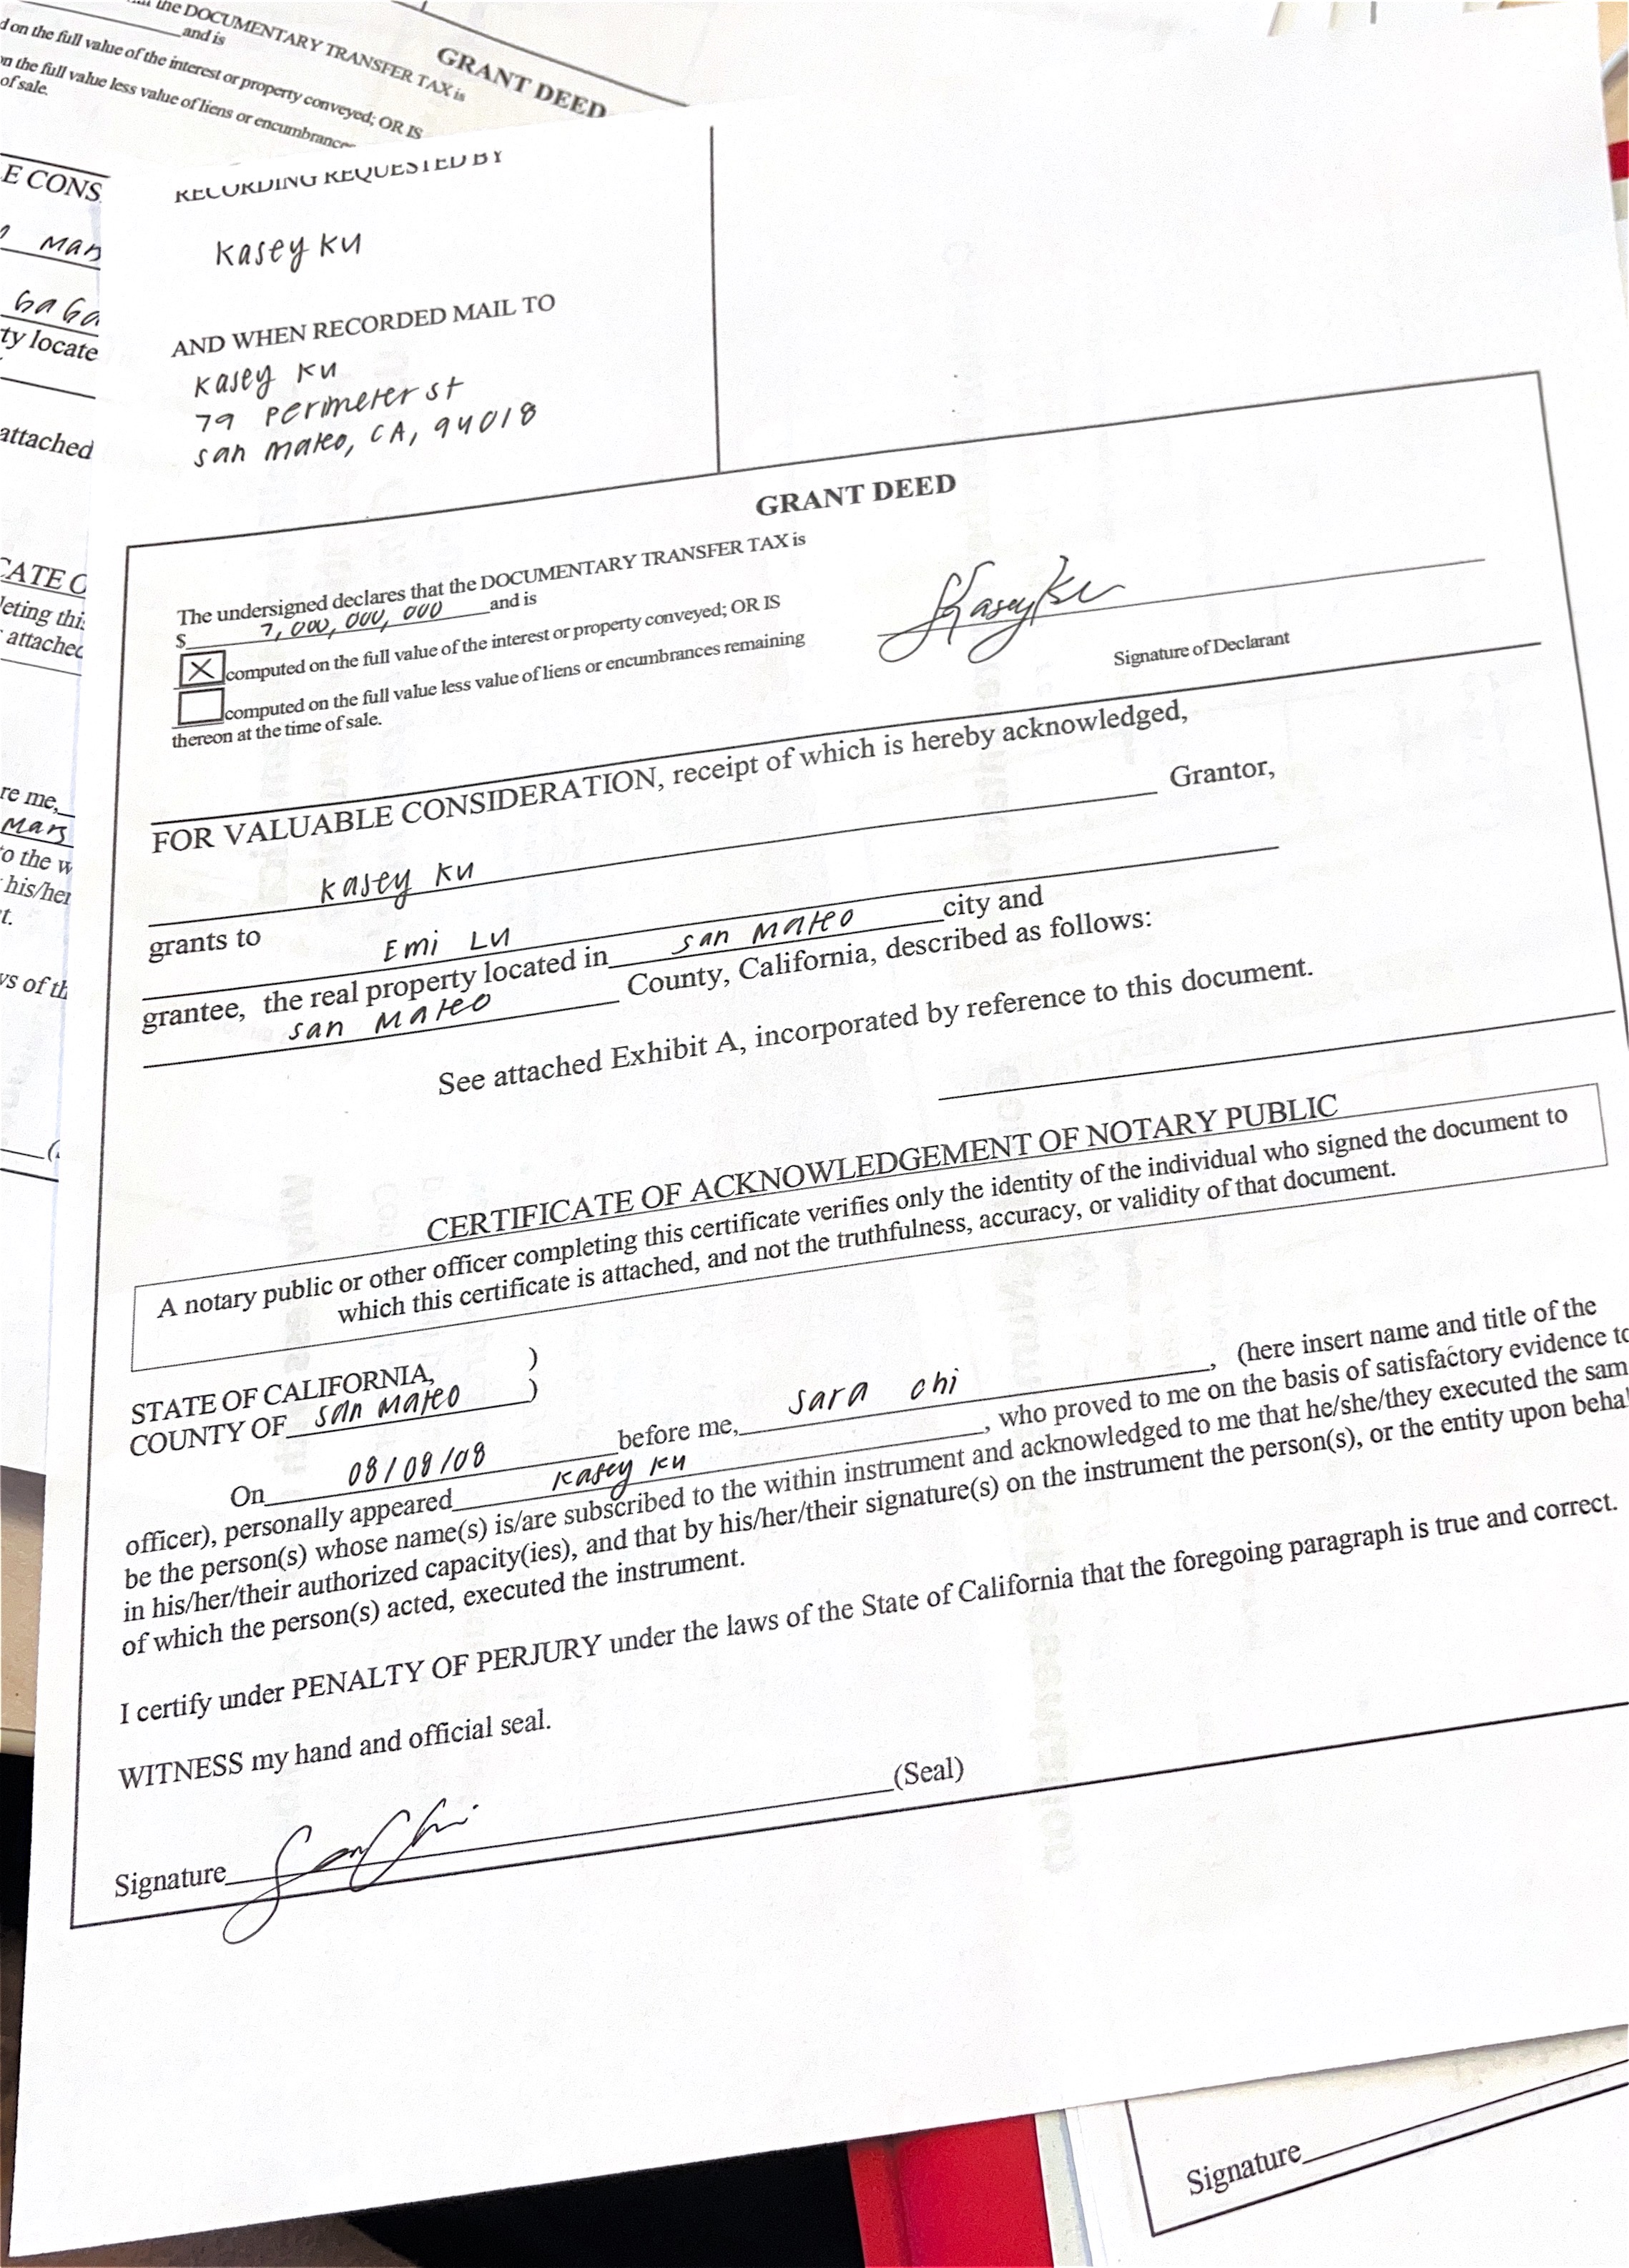 the DOCUMENTARY TRANSFER TAX is
and is
d on the full value of the interest or property conveyed; OR IS
on the full value less value of liens or encumbrances
of sale.
GRANT DEED
E CONS
Mars
GaGa
ty locate
attached
CATE O
leting this
attached
re me,
Mars
to the w
his/her
t.
ws of th
RECORDING REQUESTED BY
Kasey Ku
AND WHEN RECORDED MAIL TO
Kasey Ku
79 Perimeter st
San Mateo, CA, 94018
GRANT DEED
The undersigned declares that the DOCUMENTARY TRANSFER TAX is
$ 7,000,000,000 and is
X computed on the full value of the interest or property conveyed; OR IS
computed on the full value less value of liens or encumbrances remaining
thereon at the time of sale.
Kasey Ku
Signature of Declarant
FOR VALUABLE CONSIDERATION, receipt of which is hereby acknowledged,
Kasey Ku Grantor,
grants to Emi Lu
grantee, the real property located in San Mateo city and
San Mateo County, California, described as follows:
See attached Exhibit A, incorporated by reference to this document.
CERTIFICATE OF ACKNOWLEDGEMENT OF NOTARY PUBLIC
A notary public or other officer completing this certificate verifies only the identity of the individual who signed the document to
which this certificate is attached, and not the truthfulness, accuracy, or validity of that document.
STATE OF CALIFORNIA, )
COUNTY OF San Mateo )
On 08/08/08 before me, Sara Chi, (here insert name and title of the
officer), personally appeared Kasey Ku, who proved to me on the basis of satisfactory evidence to
be the person(s) whose name(s) is/are subscribed to the within instrument and acknowledged to me that he/she/they executed the sam
in his/her/their authorized capacity(ies), and that by his/her/their signature(s) on the instrument the person(s), or the entity upon behal
of which the person(s) acted, executed the instrument.
I certify under PENALTY OF PERJURY under the laws of the State of California that the foregoing paragraph is true and correct.
WITNESS my hand and official seal.
Signature Sara Chi (Seal)
Signature